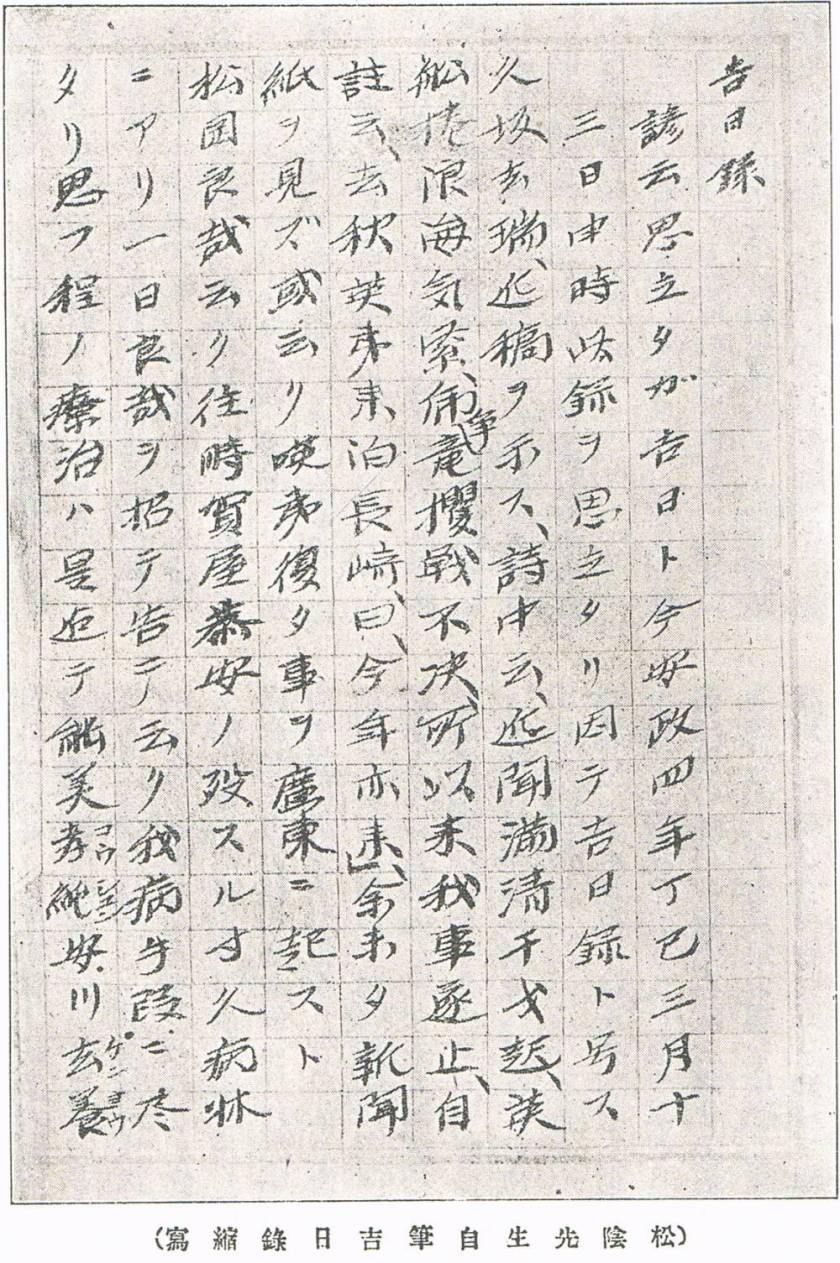 吉日録
諺云思立タガ吉日ト今安政四年丁巳三月十
三日申時此録ヲ思立タリ因テ吉日録ト号ス
久坂玄瑞、近稿ヲ示ス、詩中云、近聞満清干戈起、英
舩捲浪海気緊、両竜争攫戦不决、所以来我事遂止、自
註云、去秋英夷来泊長崎、曰、今年亦来、余未タ新聞
紙ヲ見ズ或云リ暎夷復タ事ヲ廣東ニ起スト
松岡良哉云ク往時賀屋泰安ノ歿スルヰ久病牀
ニアリ一日良哉ヲ招テ告テ云ク我病手段ニ尽
タリ思フ程ノ療治ハ是迄テ能美孝純安川玄養
コウ ジユン ゲン ヨウ
(松陰先生自筆吉日錄縮寫)